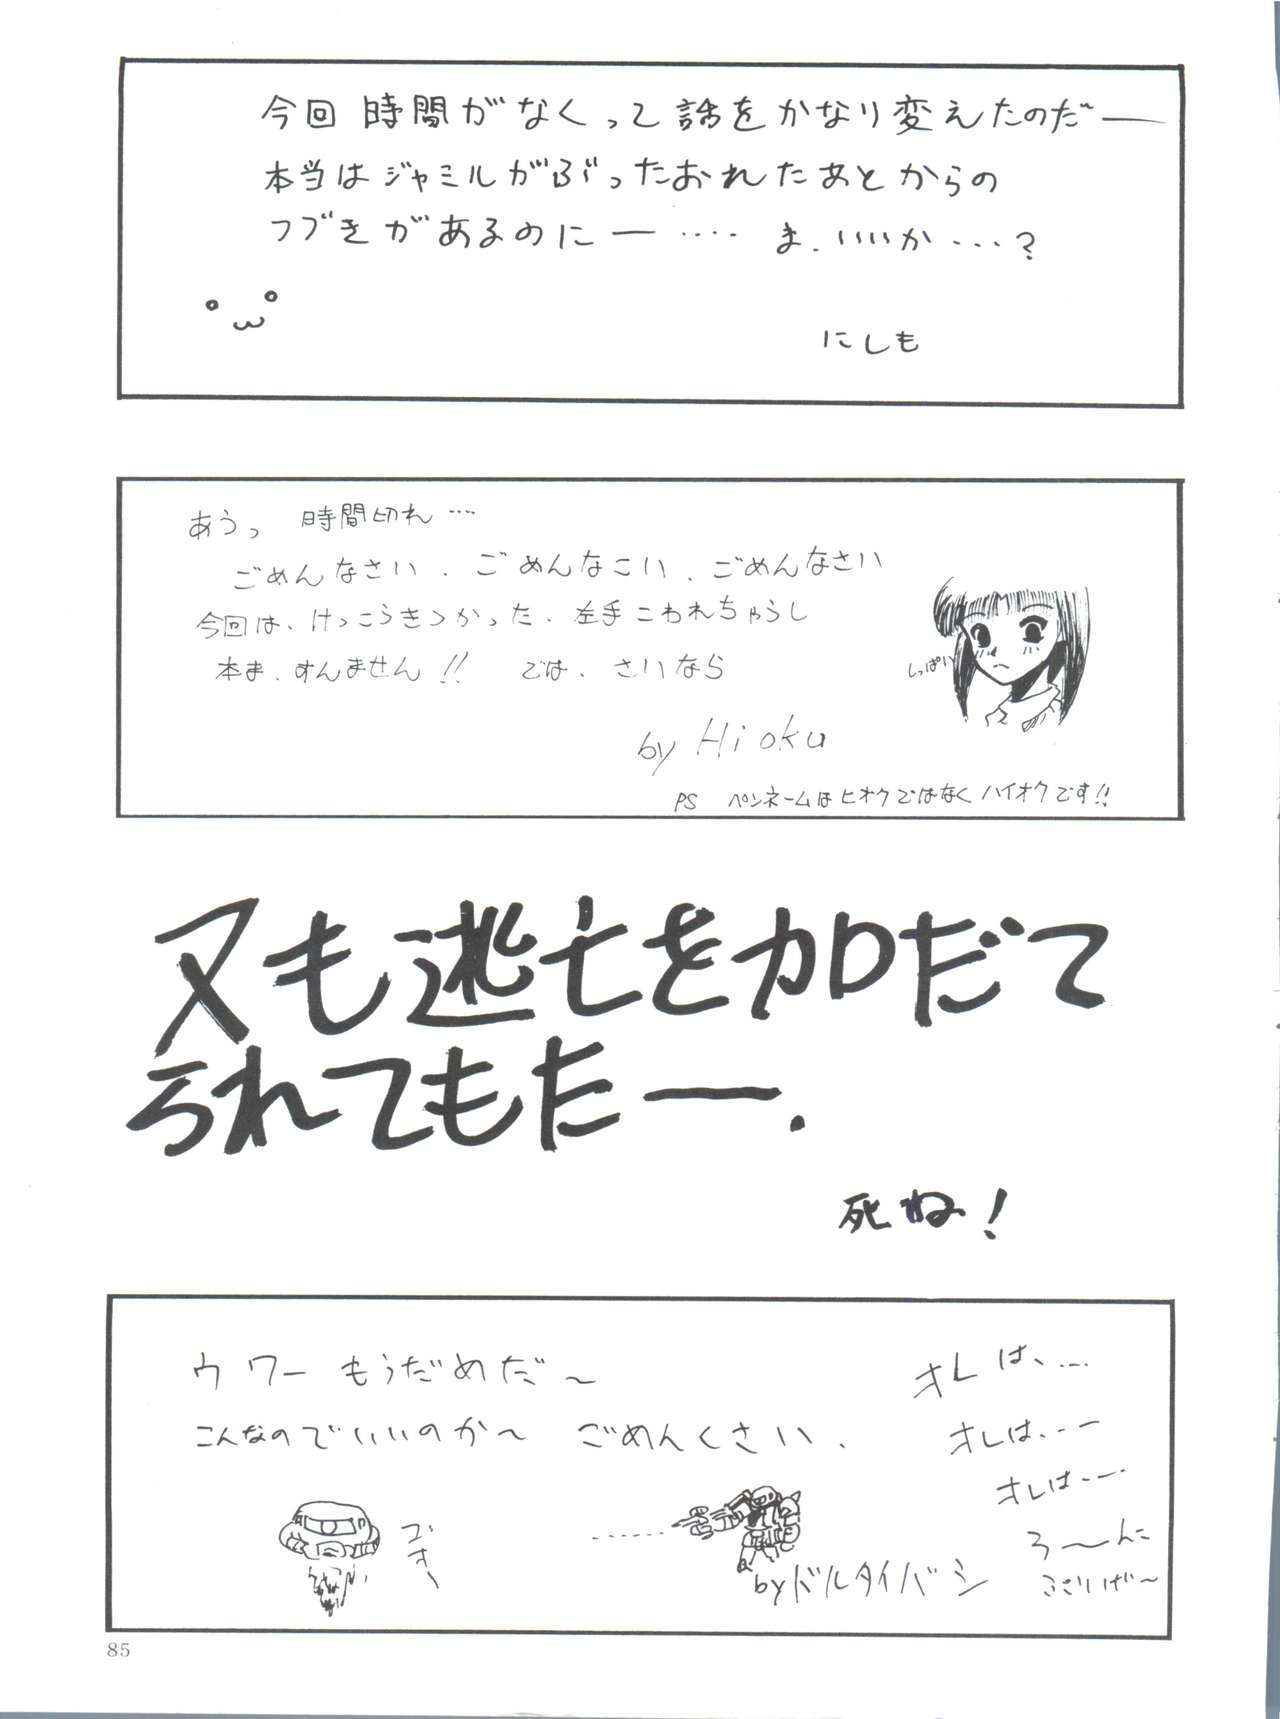 今回 時間がなくって話をかなり変えたのだー
本当はジャミルがぶったおれたあとからの
つづきがあるのにー‥‥ ま.いいか…?
にしも
あうっ 時間切れ…
ごめんなさい.ごめんなこい.ごめんなさい
今回は、けっこうきつかった.左手こわれちゃうし
本ま、すんません!! では、さいなら
しっぱい
by Hioku
PS ペンネームはヒオクではなくハイオクです!!
又も逃亡を加だて
られてもたー.
死ね!
ウワー もうだめだ~
こんなのでいいのか~ ごめんくさい.
オレは、…
オレは、--
オレは---
ろ~んに
ゴオ~
byドルタイバシ
85